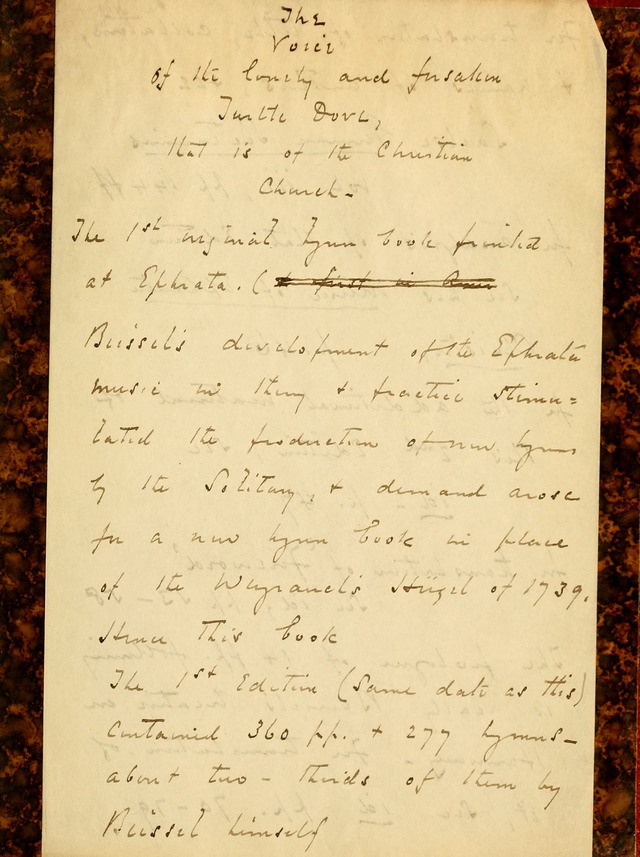 The
Voice
of the lonely and forsaken
Turtle Dove,
that is of the Christian
Church -
The 1st original hymn book printed
at Ephrata. (& first in Amer
Beissel's development of the Ephrata
music in theory & practice stimu=
lated the production of new hymns
by the Solitary, & demand arose
for a new hymn book in place
of the Weyrauch's Hügel of 1739.
Hence this book
The 1st Edition (same date as this)
contained 360 pp. & 277 hymns -
about two - thirds of them by
Beissel himself